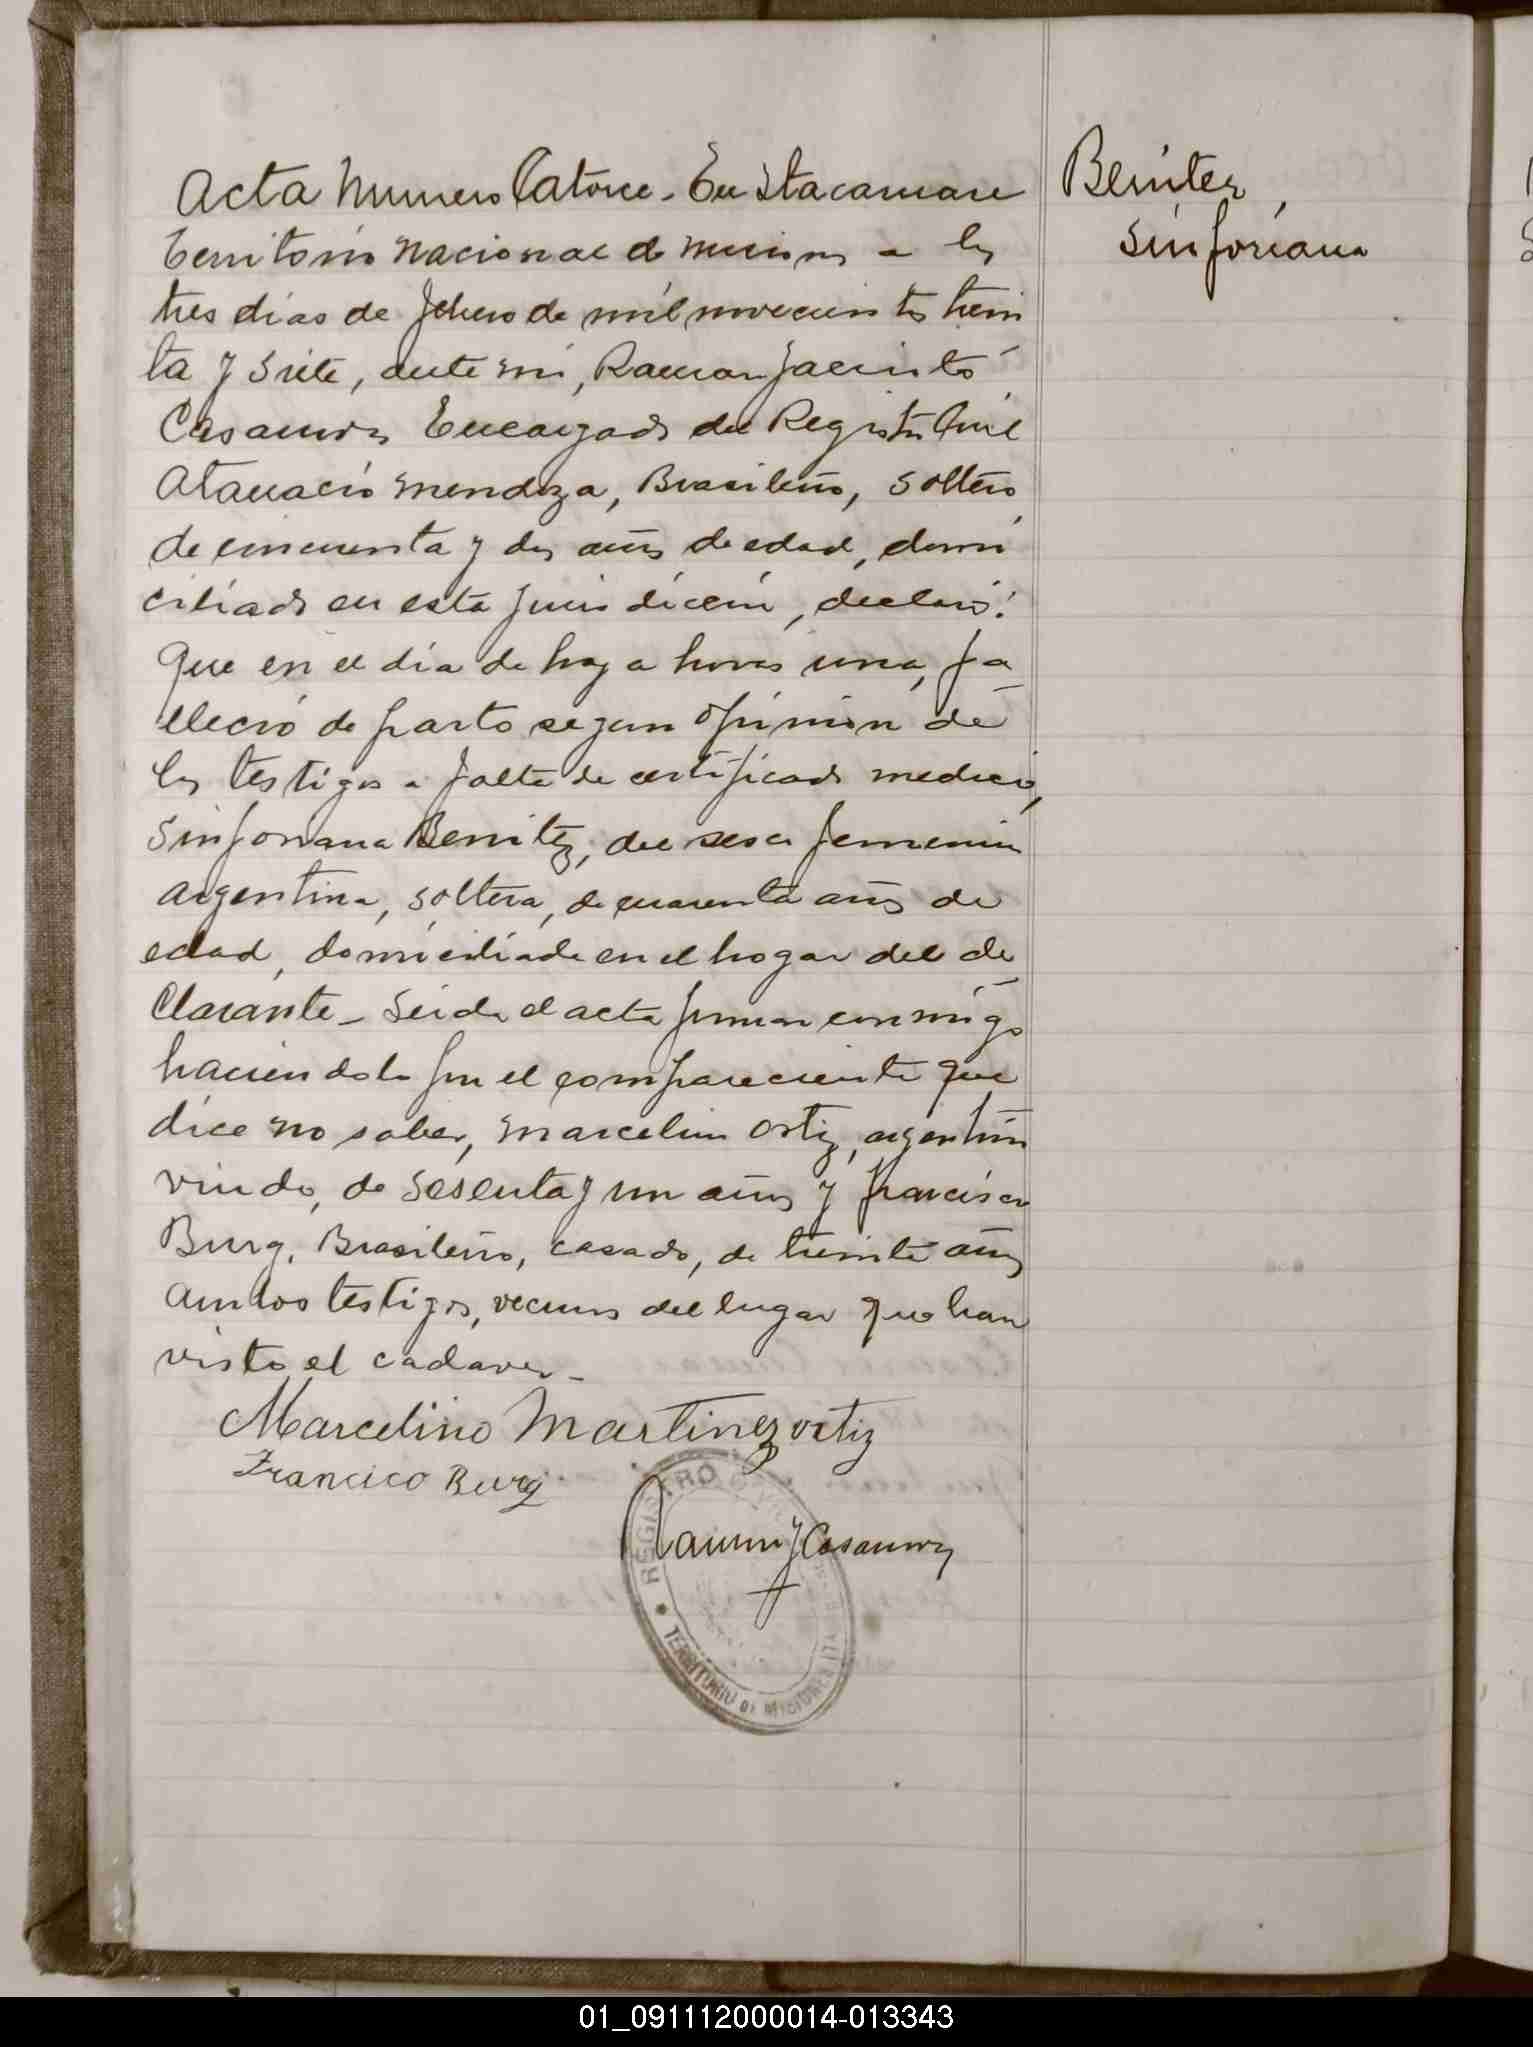 Acta Numero Catorce - En Itacaruare
territorio nacional de misiones a los
tres dias de febrero de mil novecientos trein
ta y siete, ante mi, Ramon Jacinto
Casamor Encargado del Registro Civil
Atanacio Mendoza, Brasileño, soltero,
de cincuenta y dos años de edad, domi
ciliado en esta jurisdiccion, declaró:
Que en el dia de hoy a horas una, fa
lleció de parto segun opinion de
los testigos a falta de certificado medico,
Sinforiana Benitez, del sexo femenino
argentina, soltera, de cuarenta años de
edad, domiciliada en el hogar del de
clarante - Leida el acta firman conmigo
haciendolo por el compareciente que
dice no saber, Marcelino Ortiz, argentino
viudo, de sesenta y un años y francisco
Burg, Brasileño, casado, de treinta años
ambos testigos, vecinos del lugar que han
visto el cadaver -
Marcelino Martinez ortiz
Francico Burg
Ramon J Casamor
REGISTRO CIVIL
TERRITORIO DE MISIONES
Benitez,
Sinforiana
01_091112000014-013343